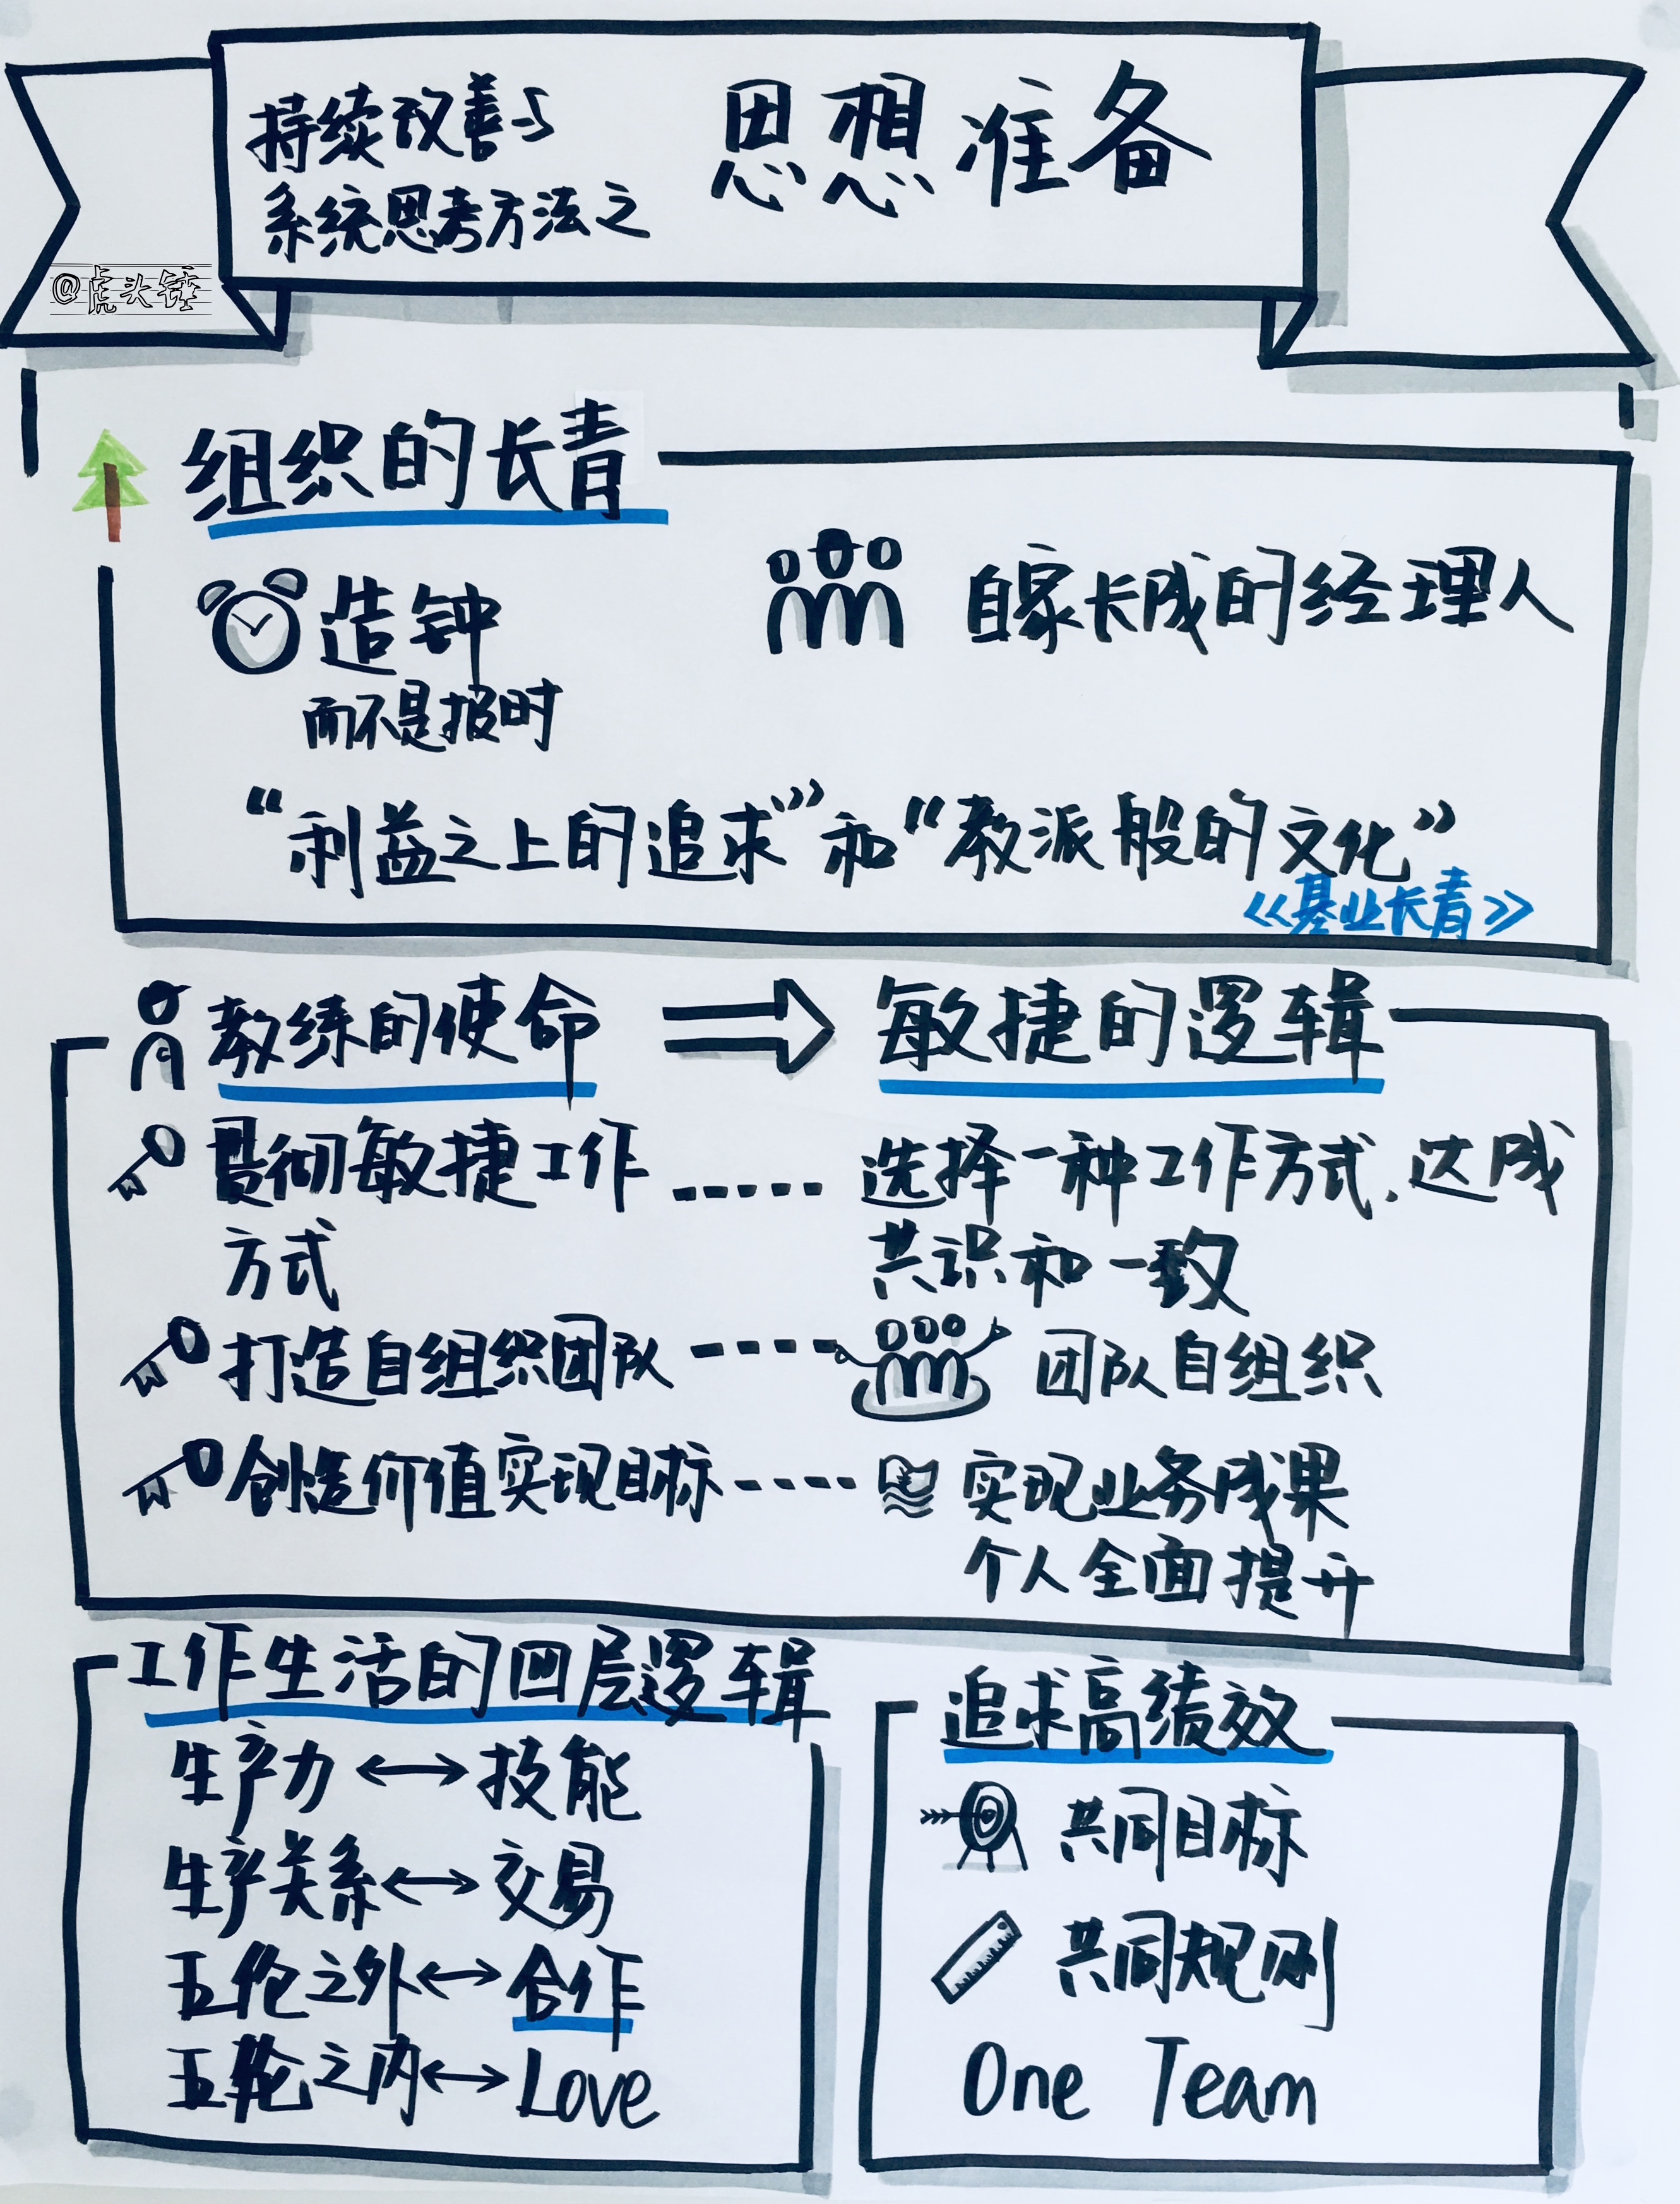 持续改善与
系统思考方法之
思想准备
@虎头锤
组织的长青
造钟
而不是报时
自家长成的经理人
“利益之上的追求”和“教派般的文化”
《基业长青》
教练的使命
敏捷的逻辑
贯彻敏捷工作
方式
选择一种工作方式，达成
共识和一致
打造自组织团队
团队自组织
创造价值实现目标
实现业务成果
个人全面提升
工作生活的四层逻辑
生产力↔技能
生产关系↔交易
五伦之外↔合作
五轮之内↔Love
追求高绩效
共同目标
共同规则
One Team